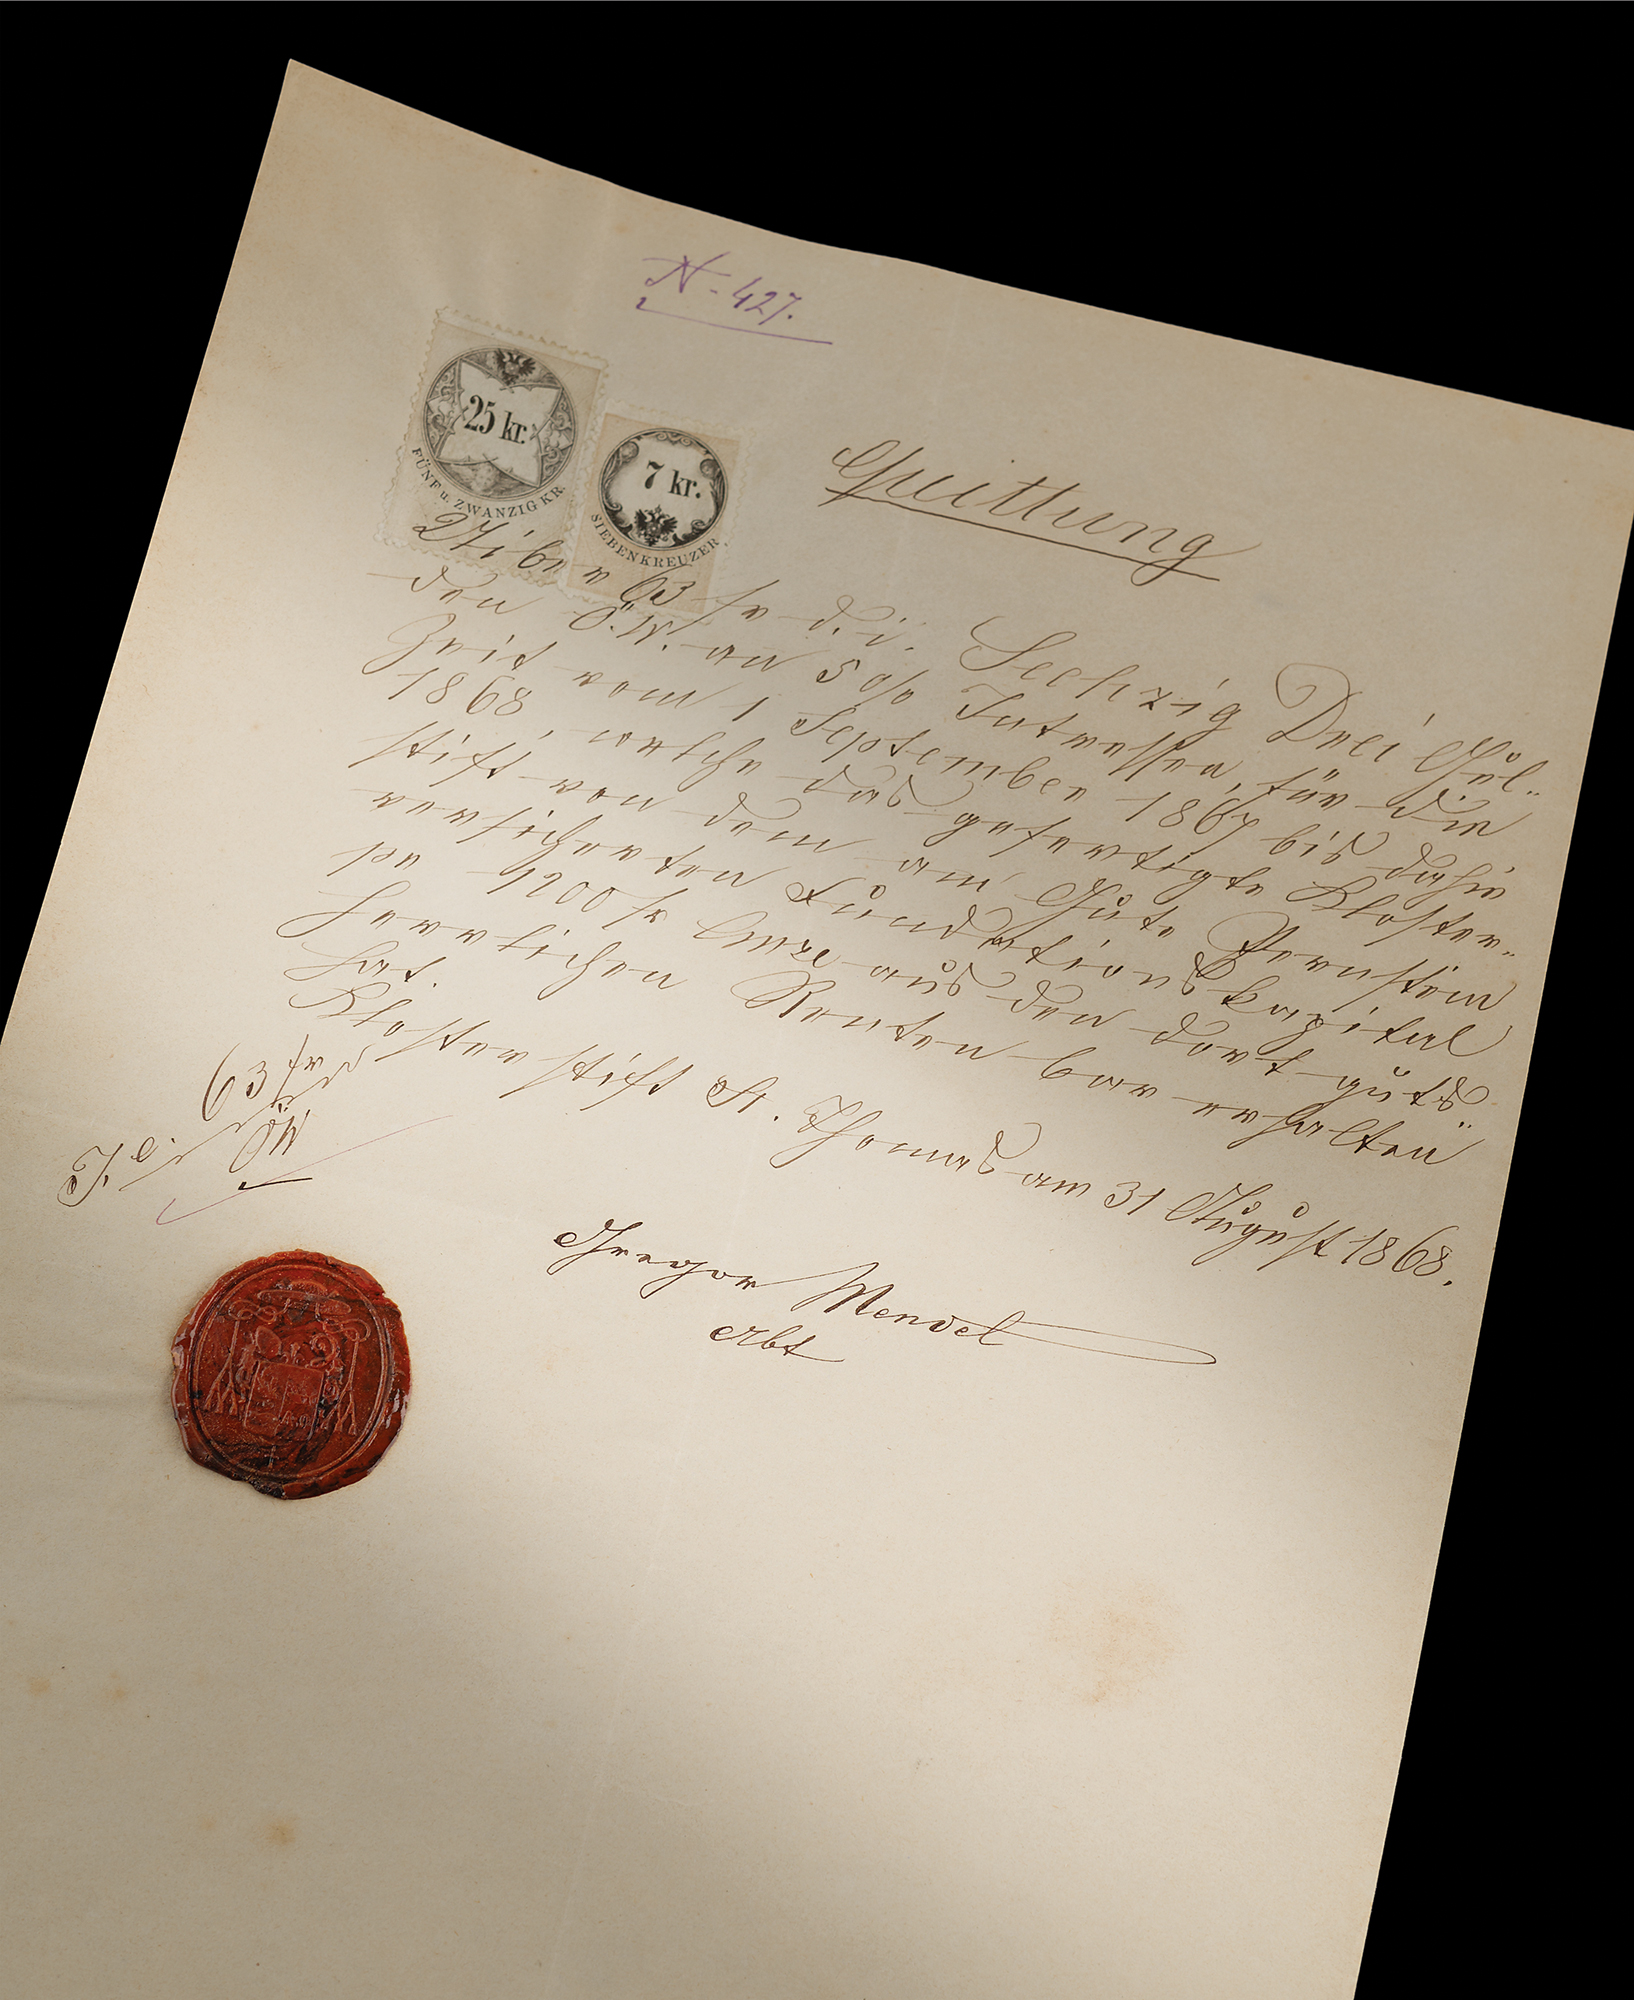 N- 427.
25 kr.
FÜNF u. ZWANZIG KR.
7 kr.
SIEBEN KREUZER
Quittung
Über 63 fr d. i. Sechzig Drei Gul-
den Ö.W. an 5 0/0 Intressen, für die
Zeit vom 1 September 1867 bis dahin
1868, welche das gefertigte Kloster-
stift von dem am Gute Pernstein
versicherten Fundationskapital
pr 1200 fr aus den dort guts
herrlichen Renten bar erhalten
hat.
Klosterstift St. Thomas am 31 August 1868.
63 fr
ÖW
Gregor Mendel
Abt